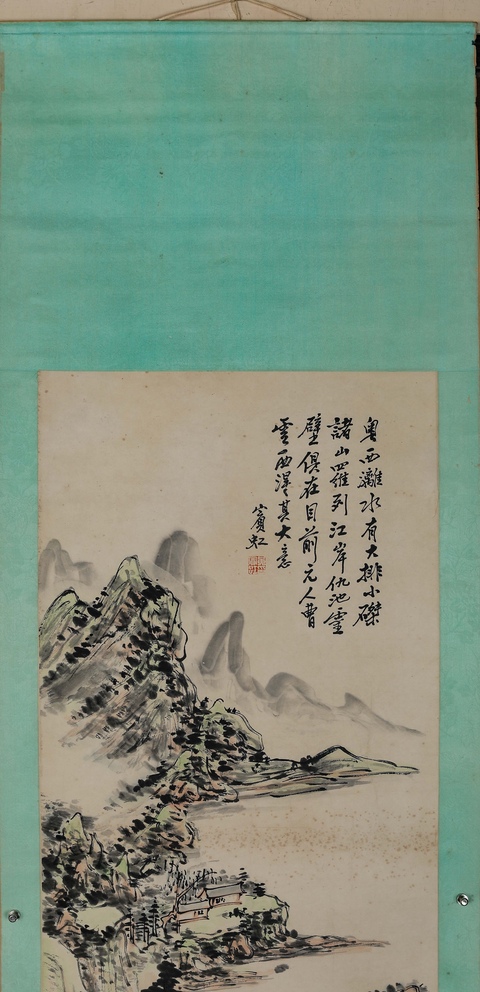 粤西灕水有大排小磔
諸山羅列江岸仇池靈
壁俱在目前元人曹
雲西得其大意
賓虹